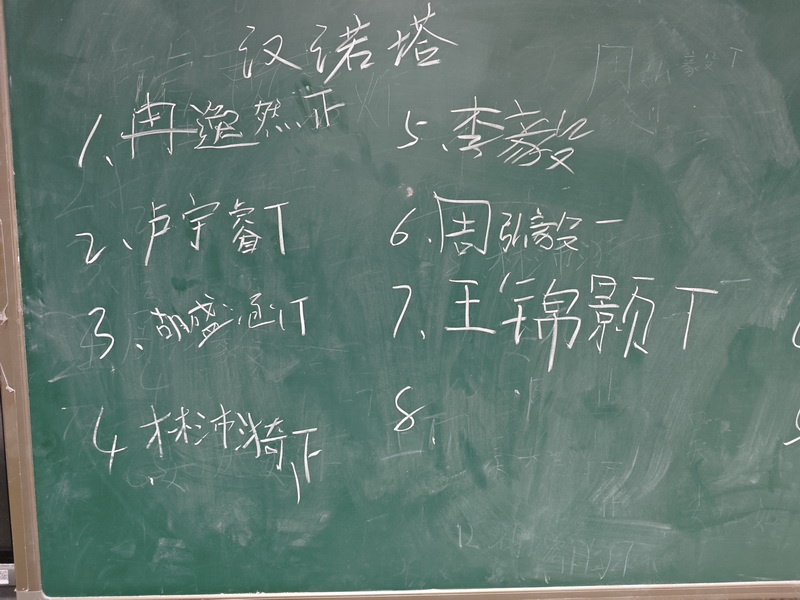 汉诺塔
1、冉逸然正
2、卢宇睿丅
3、胡盛涵丅
4 林沛漪下
5、李毅
6、周弘毅一
7、王锦颢丅
8